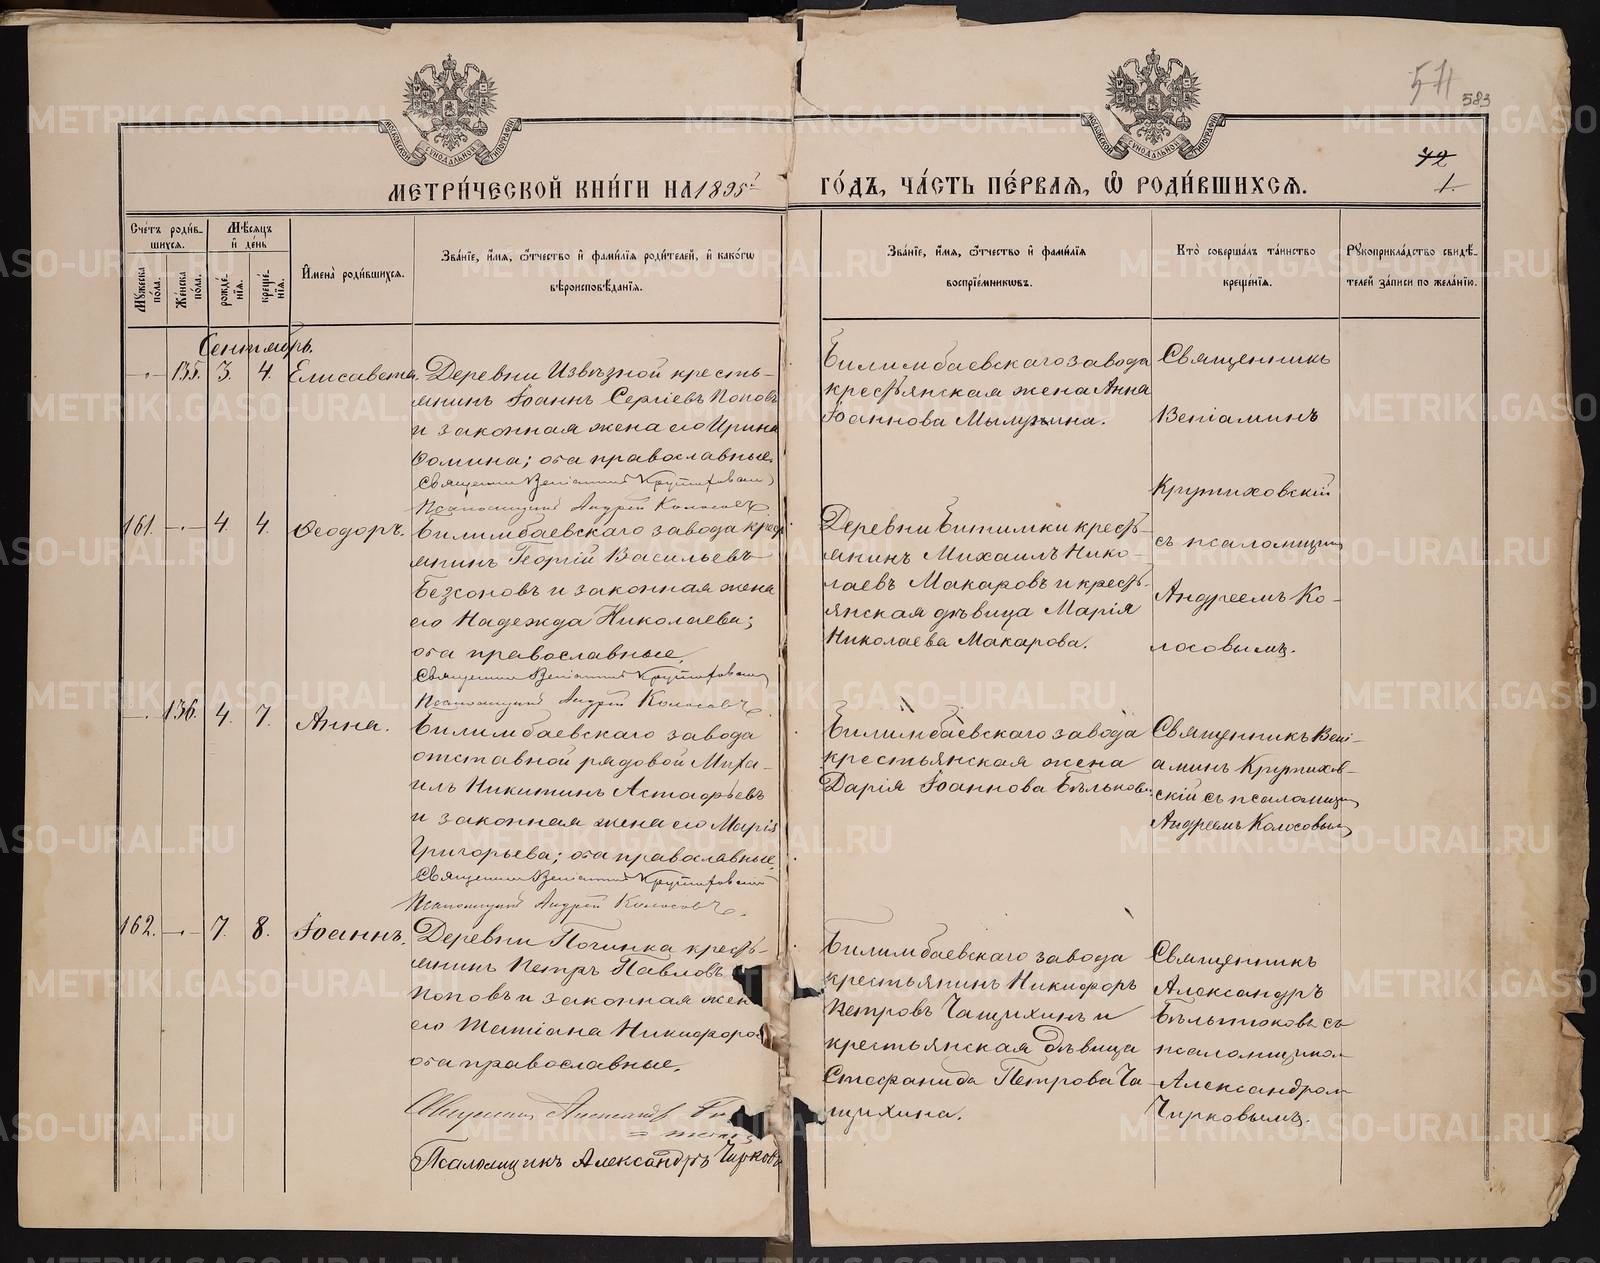 571
583
72
1.
МОСКОВСКОЙ СѴНОДАЛЬНОЙ ТИПОГРАФІИ
МОСКОВСКОЙ СѴНОДАЛЬНОЙ ТИПОГРАФІИ
МЕТРИ́ЧЕСКОЙ КНИ́ГИ НА 1895й
ГО́ДЪ, ЧА́СТЬ ПЕ́РВАЯ, Ѿ РОДИ́ВШИХСЯ.
Сче́тъ роди́в-
шихся.
Мѣ́сяцъ
и҆ де́нь
Мꙋжеска по́ла.
Же́нска по́ла.
рожде́-
нїѧ.
креще́-
нїѧ.
И҆мена̀ роди́вшихся.
Зва́нїе, и҆́мя, ѻ҆́тчество и҆ фами́лїя роди́телей, и҆ како́гѡ
вѣроисповѣ́данїя.
Зва́нїе, и҆́мя, ѻ҆́тчество и҆ фами́лїя
воспрїе́мникѡвъ.
Кто̀ соверша́лъ та́инство
креще́нїя.
Рꙋкоприкла́дство свидѣ́-
телей за́писи по жела́нїю.
Сентябрь.
135. 3. 4. Елисавета.
Деревни Извѣзной кресть-
янинъ Іоаннъ Сергіевъ Поповъ
и законная жена его Ирина
Фомина; оба православные.
Священникъ Веніаминъ Крутиховскій
Псаломщикъ Андрей Колосовъ.
Билимбаевскаго завода
крестьянская жена Анна
Іоаннова Мылужина.
Священникъ
Веніаминъ
Крутиховскій
161. 4. 4. Ѳеодоръ.
Билимбаевскаго завода крест
янинъ Георгій Васильевъ
Безсоновъ и законная жена
его Надежда Николаева;
оба православные.
Священникъ Веніаминъ Крутиховскій
Псаломщикъ Андрей Колосовъ.
Деревни Битимки кресть-
янинъ Михаилъ Нико-
лаевъ Макаровъ и кресть-
янская дѣвица Марія
Николаева Макарова.
съ псаломщикомъ
Андреемъ Ко-
лосовымъ.
136. 4. 7. Анна.
Билимбаевскаго завода
отставной рядовой Миха-
илъ Никитинъ Астафьевъ
и законная жена его Марія
Григорьева; оба православные.
Священникъ Веніаминъ Крутиховскій
Псаломщикъ Андрей Колосовъ.
Билимбаевскаго завода
крестьянская жена
Дарія Іоаннова Бѣлькова.
Священникъ Вені-
аминъ Крутихов-
скій съ псаломщик
Андреемъ Колосовым
162. 7. 8. Іоаннъ.
Деревни Починка кресть-
янинъ Петръ Павловъ
Поповъ и законная жен
его Татіана Никифоров
оба православные.
Священникъ Александръ
Псаломщикъ Александръ Чирковъ
Билимбаевскаго завода
крестьянинъ Никифоръ
Петровъ Чащихинъ и
крестьянская дѣвица
Стефанида Петрова Ча-
щихина.
Священникъ
Александръ
Бѣльтюковъ съ
псаломщиком
Александром
Чирковымъ.
METRIKI.GASO-URAL.RU